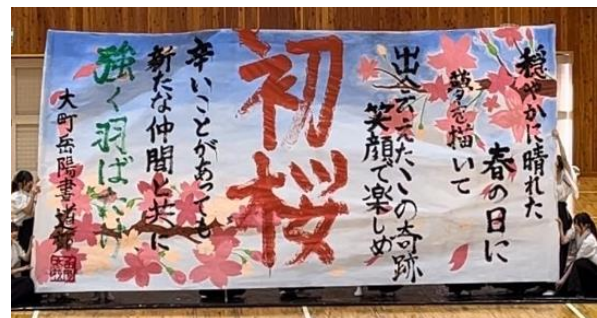 穏やかに晴れた
春の日に
夢を描いて
出会えたこの奇跡
笑顔で楽しめ
初桜
辛いことがあっても
新たな仲間と共に
強く羽ばたけ
大町岳陽書道部